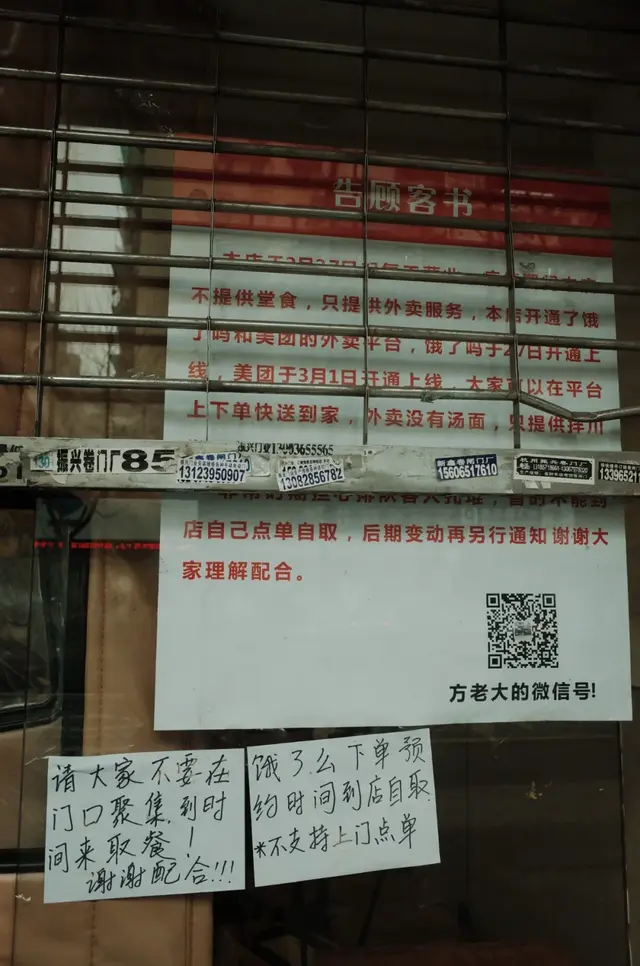 告顾客书
不提供堂食，只提供外卖服务，本店开通了饿
了吗和美团的外卖平台，饿了吗于27日开通上
线，美团于3月1日开通上线，大家可以在平台
上下单快送到家，外卖没有汤面，只提供拌川
振兴卷门厂85
13123950907
13082856782
新鑫卷闸门厂
15606517610
店自己点单自取，后期变动再另行通知谢谢大
家理解配合。
方老大的微信号!
请大家不要在
门口聚集,到时
间来取餐!
谢谢配合!!!
饿了么下单预
约时间到店自取
*不支持上门点单